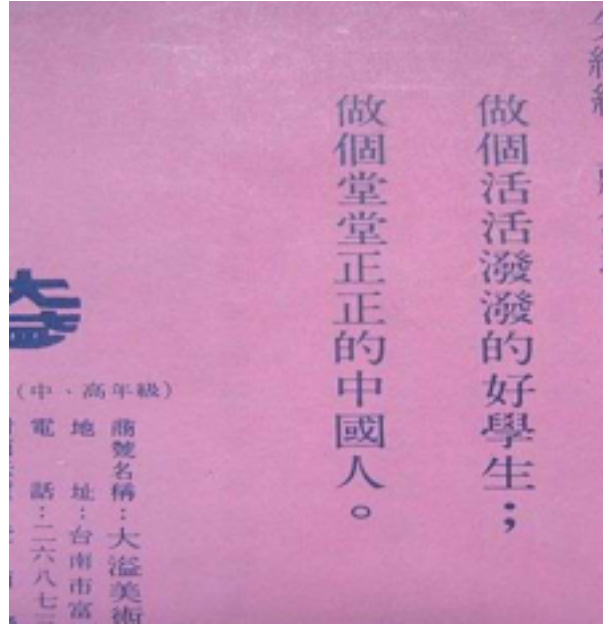 做個活活潑潑的好學生；
做個堂堂正正的中國人。
大溢
（中、高年級）
商號名稱：大溢美術
地址：台南市富
電話：二六八七